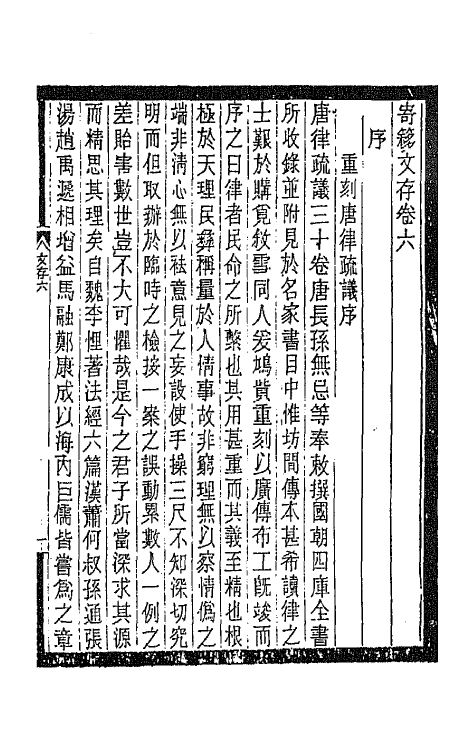 寄簃文存卷六
序
重刻唐律疏議序
唐律疏議三十卷唐長孫無忌等奉敕撰國朝四庫全書
所收錄並附見於名家書目中惟坊間傳本甚希讀律之
士艱於購覓敘雪同人爰鳩貲重刻以廣傳布工旣竣而
序之曰律者民命之所繫也其用甚重而其義至精也根
極於天理民彝稱量於人情事故非窮理無以察情偽之
端非清心無以祛意見之妄設使手操三尺不知深切究
明而但取辦於臨時之檢按一案之誤動累數人一例之
差貽害數世豈不大可懼哉是今之君子所當深求其源
而精思其理矣自魏李悝著法經六篇漢蕭何叔孫通張
湯趙禹遞相增益馬融鄭康成以海內巨儒皆嘗為之章
文存六
一